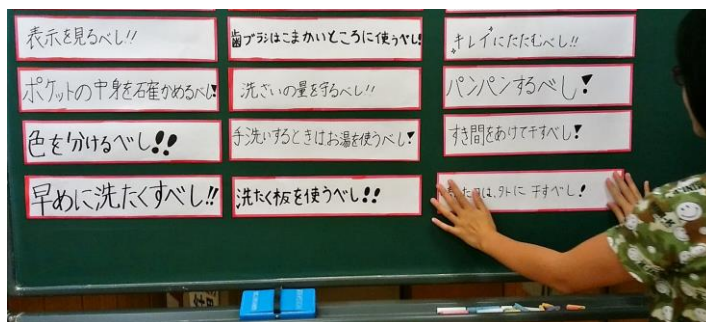 表示を見るべし!!
ポケットの中身を確かめるべし!
色を分けるべし!!
早めに洗たくすべし!!
歯ブラシはこまかいところに使うべし!
洗ざいの量を守るべし!!
手洗いするときはお湯を使うべし!
洗たく板を使うべし!!
キレイにたたむべし!!
パンパンするべし!
すき間をあけて干すべし!
は、外に干すべし!